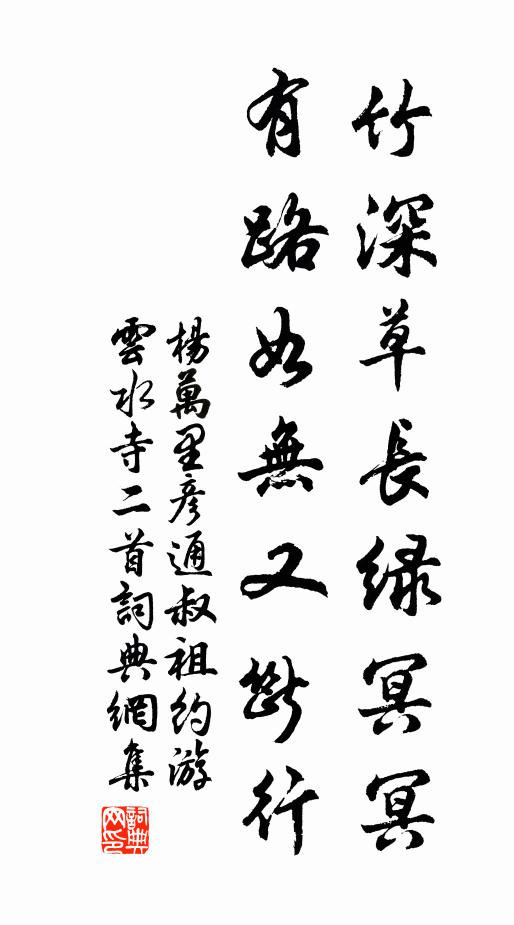 竹深草長緑冥冥
有路如無又斷行
楊萬里彥通叔祖約游
雲水寺二首詞典網集
詞典网印